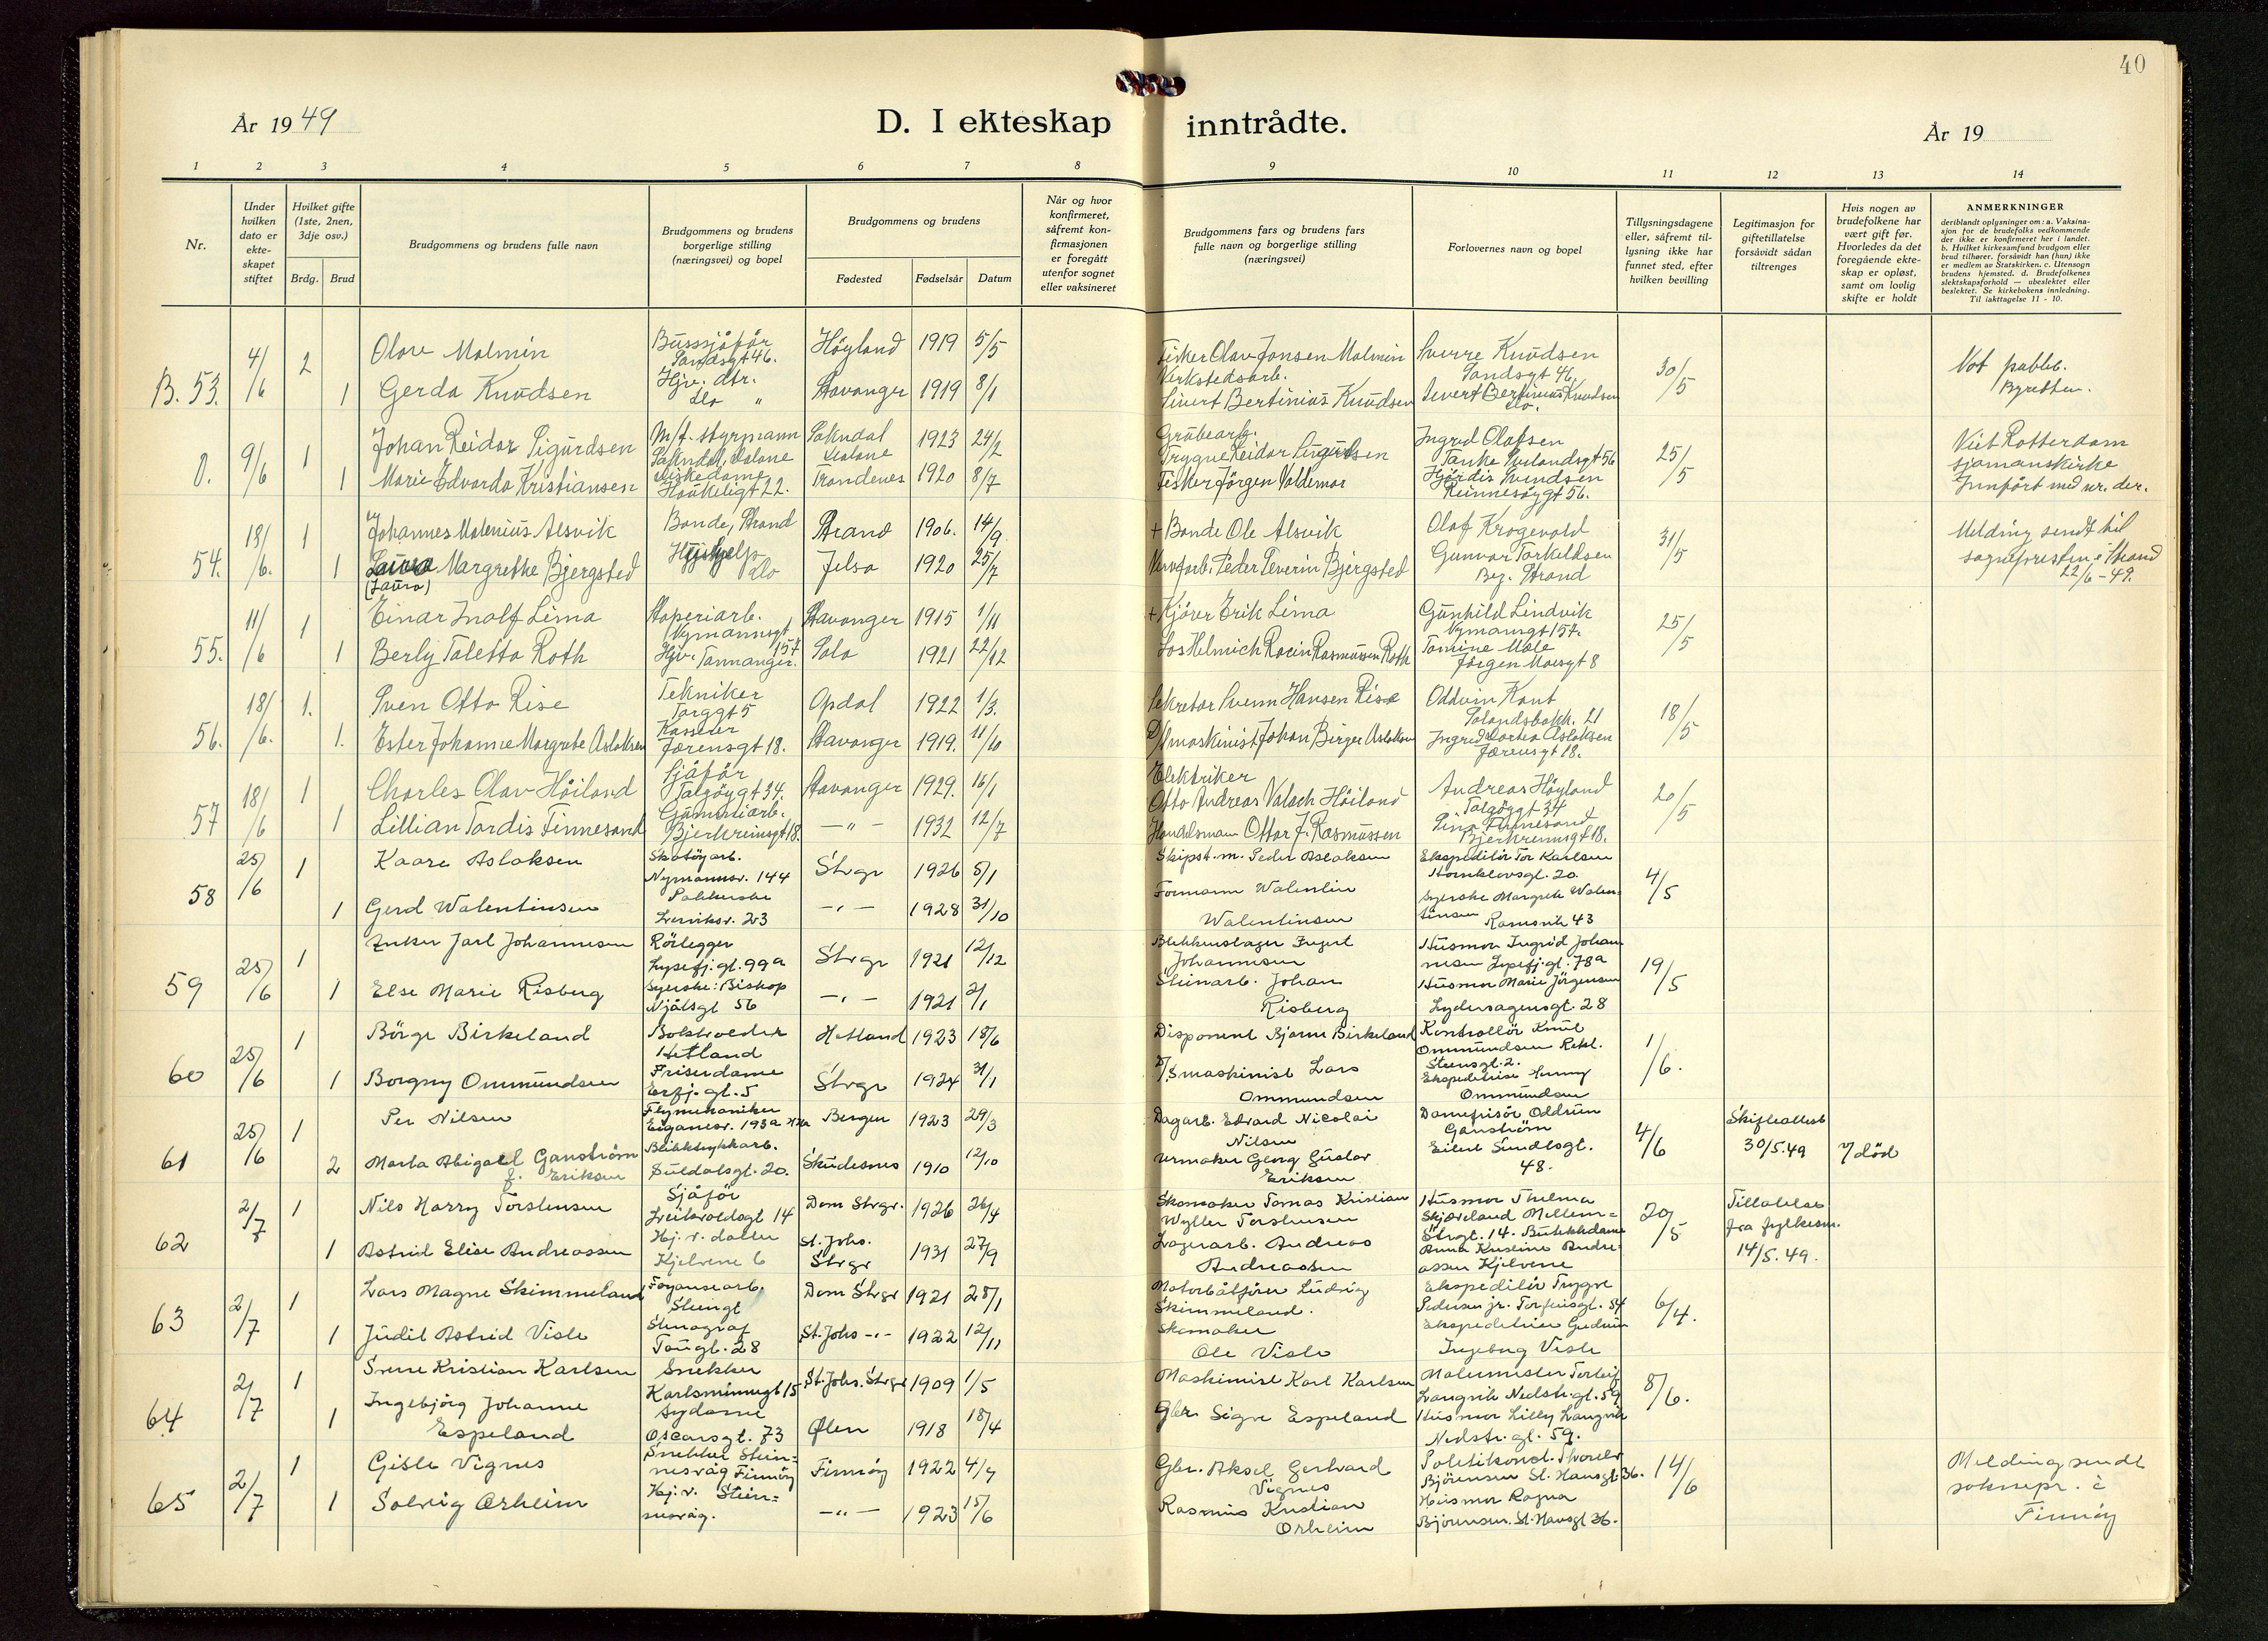 40
År 1949
D. I ekteskap inntrådte.
År 19
1 2 3 4 5 6 7 8 9 10 11 12 13 14
Nr.
Under hvilken dato er ekte-skapet stiftet
Hvilket gifte (1ste, 2nen, 3dje osv.)
Brdg. Brud
Brudgommens og brudens fulle navn
Brudgommens og brudens borgerlige stilling (næringsvei) og bopel
Brudgommens og brudens
Fødested Fødselsår Datum
Når og hvor konfirmeret, såfremt kon-firmasjonen er foregått utenfor sognet eller vaksineret
Brudgommens fars og brudens fars fulle navn og borgerlige stilling (næringsvei)
Forlovernes navn og bopel
Tillysningsdagene eller, såfremt til-lysning ikke har funnet sted, efter hvilken bevilling
Legitimasjon for giftetillatelse forsåvidt sådan tiltrenges
Hvis nogen av brudefolkene har vært gift før. Hvorledes da det foregående ekte-skap er opløst, samt om lovlig skifte er holdt
ANMERKNINGER
deriblandt oplysninger om: a. Vaksina-sjon for de brudefolks vedkommende der ikke er konfirmeret her i landet. b. Hvilket kirkesamfund brudgom eller brud tilhører, forsåvidt han (hun) ikke er medlem av Statskirken. c. Utensogn brudens hjemsted. d. Brudefolkenes slektskapsforhold — ubeslektet eller beslektet. Se kirkebokens innledning. Til iakttagelse 11 - 10.
B. 53. 4/6 2 Olav Malmin Bussjåfør Sandsgt 46. Høyland 1919 5/5 Fisker Olav Jonsen Malmin Sverre Knudsen Sandsgt 46. 30/5 Not. publ. Byretten.
1 Gerda Knudsen Hjv. dtr. do " Stavanger 1919 8/1 Verkstedsarb. Sivert Bertinius Knudsen Sivert Bertinius Knudsen do.
0. 9/6 1 Johan Reidar Sigurdsen M/f. styrmann Sokndal, Dalane Sokndal Dalane 1923 24/2 Grubearb. Trygve Reidar Sigurdsen Ingrid Olafsen Tanke Svilandsgt 56 25/5 Viet Rotterdam sjømannskirke Innført med nr. der.
1 Marie Edvarda Kristiansen Haukeligt 22. Trondenes 1920 8/7 Fisker Jörgen Valdemar Hjördis Svendsen Rennesöygt 56.
54. 18/6. 1 Johannes Malenius Alsvik Bonde, Strand Strand 1906. 14/9 + Bonde Ole Alsvik Olaf Krogevold 31/5 Melding sendt til sognepresten i Strand 22/6 - 49.
1 Laura Margrethe Bjergsted (Laura) do Jelsa 1920 25/7 Peder Severin Bjergsted Gunvor Torkeldsen Strand
55. 11/6 1 Einar Inolf Lima Støperiarb. Nymannsgt 157 Stavanger 1915 1/11 + Kjører Erik Lima Gunhild Lindvik Nymansgt 157. 25/5
1 Berly Taletta Roth Hjv. Tananger. Sola 1921 22/12 Los Helmich Rasmussen Roth Tomine Mæle Jörgen Moesgt 8
56. 18/6. 1. Sven Otto Rise Tekniker Torggt 5 Opdal 1922 1/3. Sekretær Svenn Hansen Rise Oddvin Kant 21 18/5
1. Ester Johanne Margrete Aslaksen Kasserer Jærensgt 18. Stavanger 1919. 11/10 D/Smaskinist Johan Birger Aslaksen Ingrid Aslaksen Jærensgt 18.
57 18/6 1 Charles Olav Höiland Sjåfør Talgöygt 34. Stavanger 1929. 16/1 Elektriker Otto Andreas Höiland Andreas Höyland Talgöygt 34 20/5
1 Lillian Tordis Finnesand Gummiarb. Bjerkreimsgt 18. — " — 1932 12/7 Handelsmann Ottar J. Rasmussen Finnesand Bjerkreimsgt 18.
58 25/6 1 Kaare Aslaksen Skotöyarb. Nymannsv. 144 Stvgr 1926 5/1 Skipst. m. Peder Aslaksen Ekspeditör Tor Karlsen Hornklovsgt. 20. 4/5
1 Gerd Walentinsen Pakkerske Lerviksv. 23 — " — 1928 31/10 Formann Walentin Walentinsen Syerske Margrete Walen=tinsen Ramsvik 43
59 25/6 1 Anker Jarl Johannesen Rörlegger Lysefj. gt. 99a Stvgr 1921 12/12 Blikkenslager Johannesen Husmor Ingrid Johan nesen Lysefj. gt. 78a 19/5
1 Else Marie Risberg Syerske: Biskop Njålsgt 56 — " — 1921 2/1 Steinarb. Johan Risberg Husmor Marie Jörgensen Lydersagensgt. 28
60 25/6 1 Börge Birkeland Hetland Hetland 1923 18/6 Disponent Bjarne Birkeland Kontrollör Knut Ommundsen Steensgt. 2. 1/6.
1 Borgny Ommundsen Friserdame Erfj. gt. 5 Stvgr 1924 31/1 D/Smaskinist Lars Ommundsen Ekspeditrise Henny Ommundsen
61 25/6 1 Per Nilsen Flymekaniker Eiganesv. 193a Bergen 1923 29/3 Dagarb. Edvard Nicolai Nilsen Damefrisör Oddrun Ganström 4/6 Skifteattest 30/5.49 død
2 Marta Abigael Ganström f. Eriksen Blikktrykkarb. Suldalsgt. 20. Skudesnes 1910 12/10 Urmaker Georg Gustav Eriksen Eilert Sundtsgt. 48.
62 2/7 1 Nils Harry Torstensen Sjåför Leitevoldsgt 14 Dom Stvgr. 1926 26/4 Skomaker Tomas Kristian Wyller Torstensen Husmor Thelma Skjæveland Mellem=Strgt. 14. 20/5 Tillatelse fra fylkesm. 14/5. 49.
1 Astrid Elise Andreassen Hj. v. datter Kjelvene 6 St. Johs. Stvgr 1931 27/9 Lagerarb. Andreas Andreassen Butikkdame Anna Kristine Andre assen Kjelvene
63 2/7 1 Lars Magne Skimmeland Steingt Dom Stvgr 1921 28/1 Motorbåtförer Ludvig Skimmeland. Ekspeditör Trygve Pedersen jr. Torfæusgt. 84 6/4.
1 Judit Astrid Viste Stenograf Tougt. 28 St. Johs - " - 1922 12/11 Skomaker Ole Viste Ekspeditrise Gudrun Ingeborg Viste
64 2/7 1 Svene Kristian Karlsen Snekker Karlsminnegt 15 St. Johs. Stvgr 1909 1/5 Maskinist Karl Karlsen Malermester Torleif Langvik Nedstr. gt. 59 8/6.
1 Ingebjörg Johanne Espeland Sydame Oscarsgt. 73 Ølen 1918 18/4 Gbr. Sigve Espeland Husmor Lilly Langvik Nedstr. gt. 59.
65 2/7 1 Gisle Vignes Snekker Stein=nesvåg Finnöy Finnöy 1922 4/7 Gbr. Aksel Gerhard Vignes Politikonst. Thorolv Björensen St. Hansgt 36. 14/6 Melding sendt soknepr. i Finnöy
1 Solveig Orheim Hj. v. Stein=nesvåg. — " — 1923 15/6 Rasmus Kristian Orheim Husmor Ragna Björensen. St. Hansgt 36.